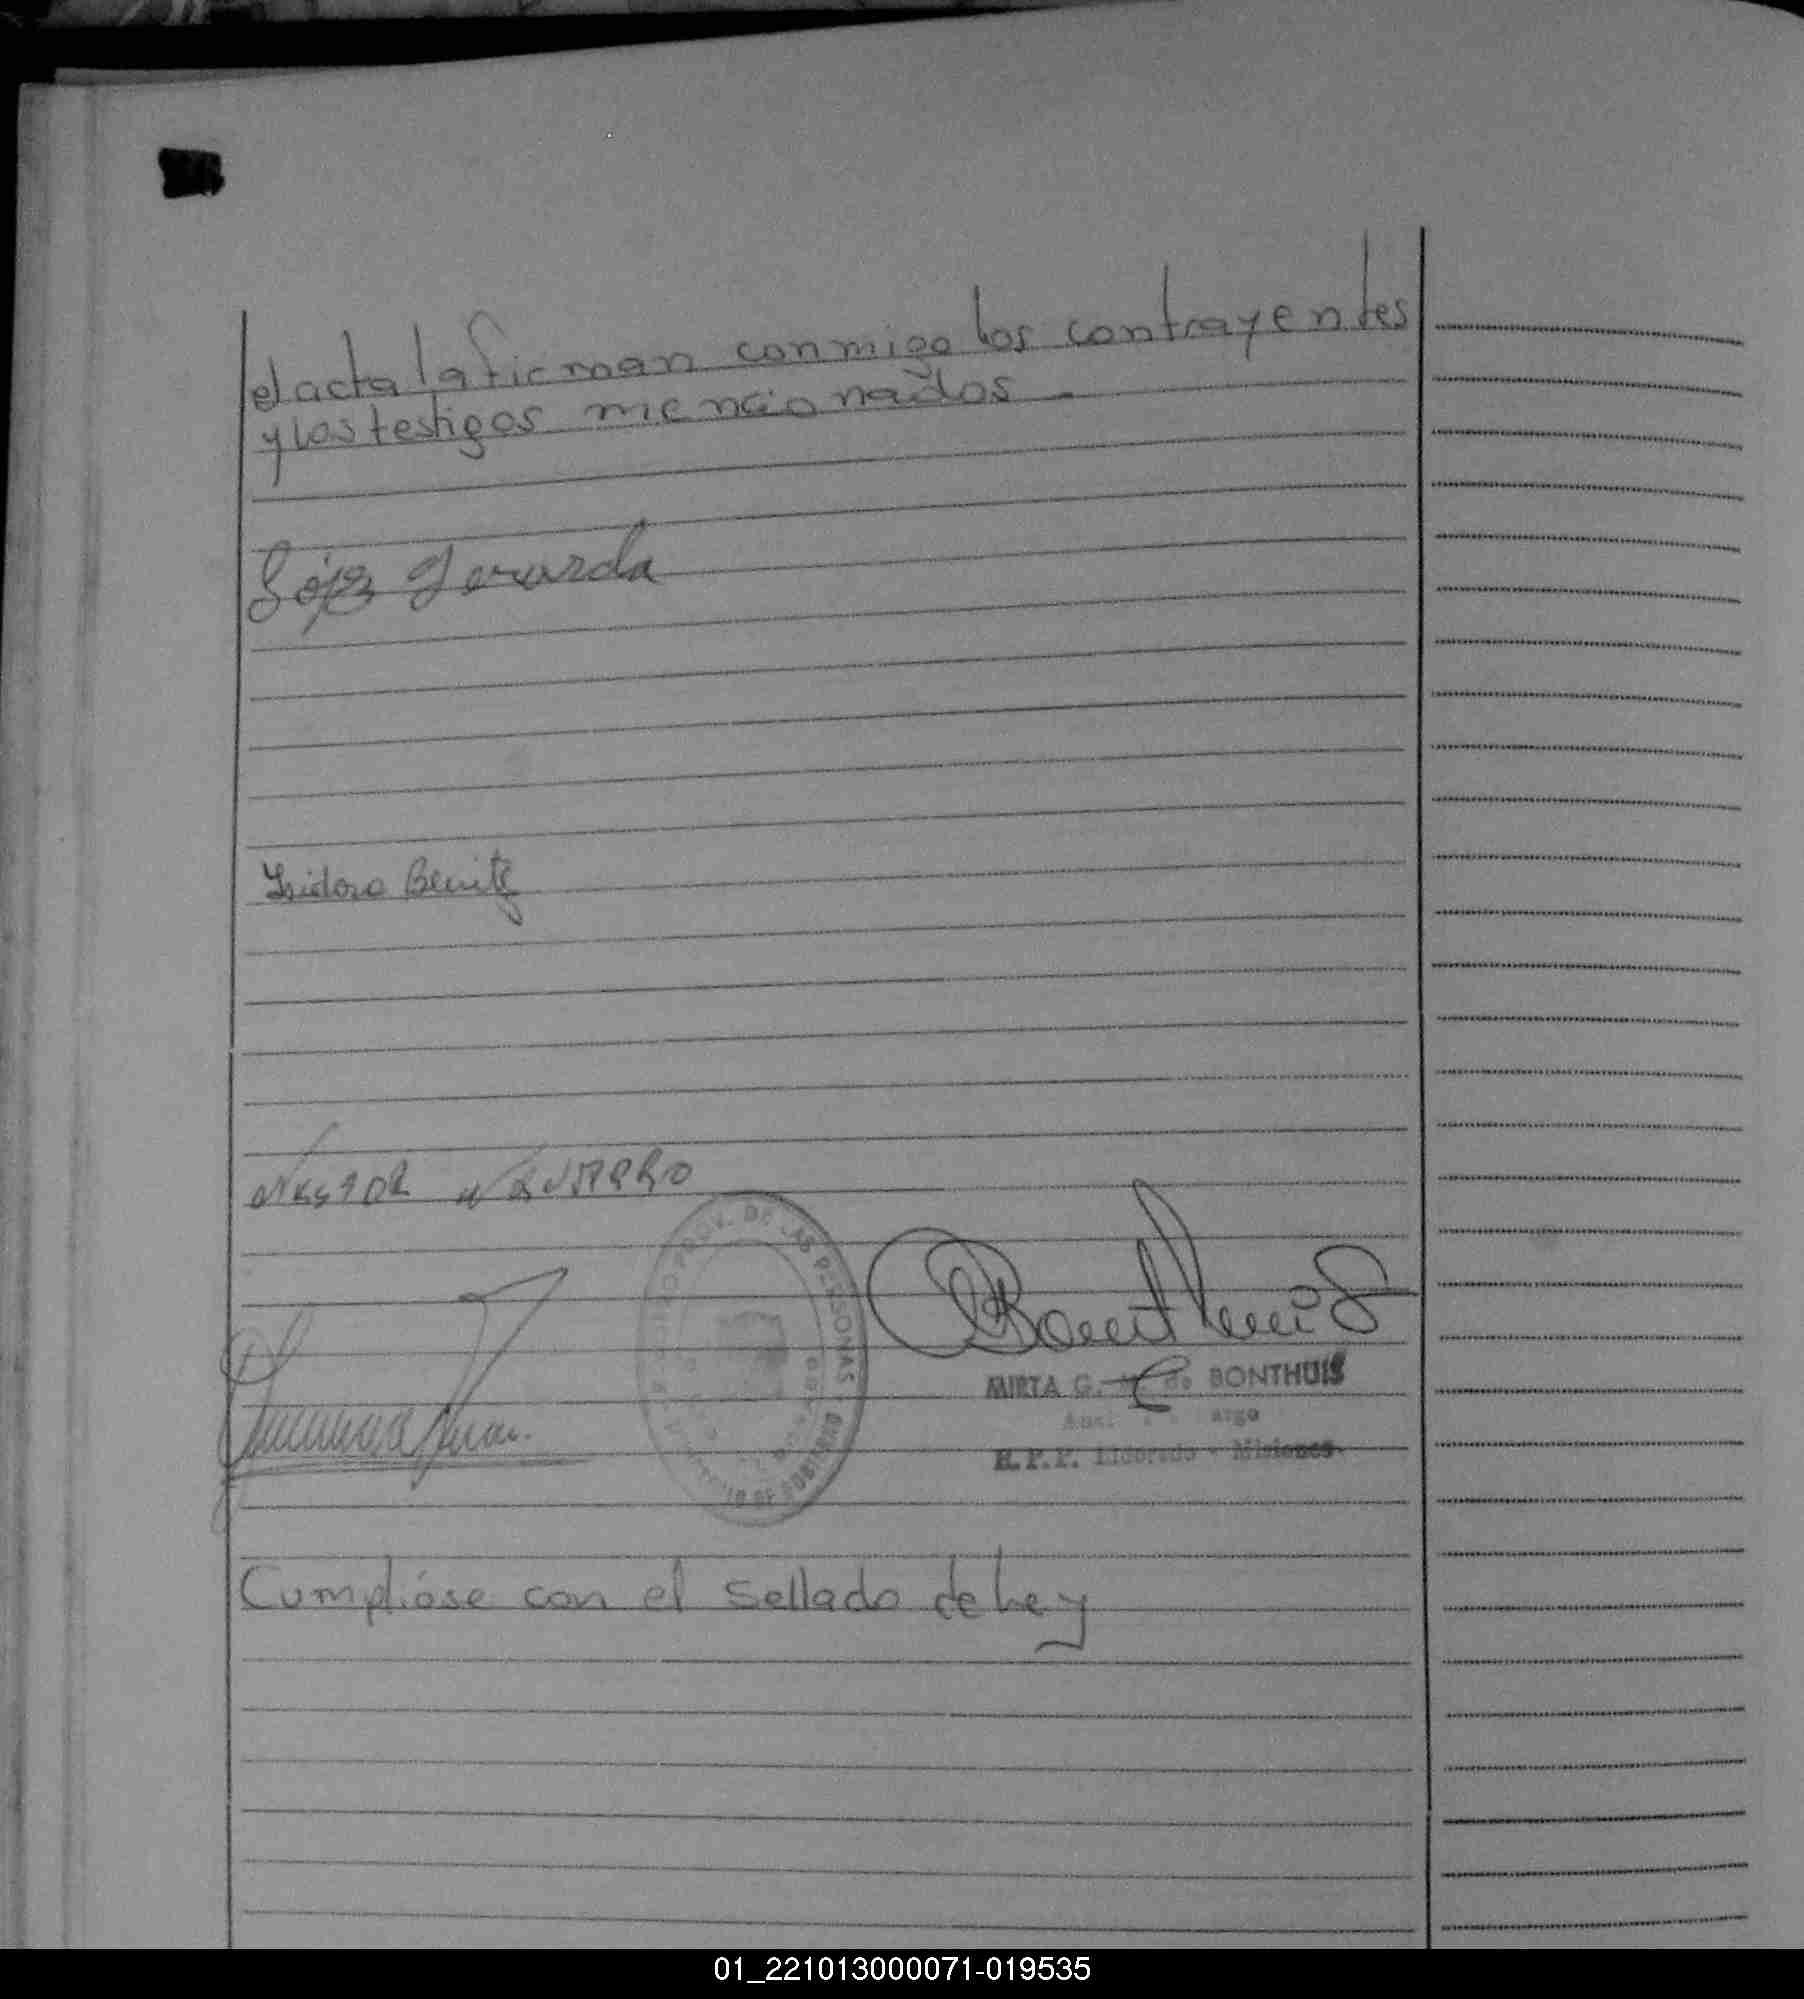 el acta la firman conmigo los contrayentes
y los testigos mencionados -
López Gerarda
Isidoro Benitz
NESTOR NAVARRO
PROV. DE LAS PERSONAS
Bonthuis
MIRTA G. de BONTHUIS
R. P. P. Eldorado - Misiones
Cumplióse con el sellado de Ley
01_221013000071-019535